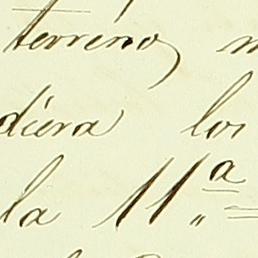 terreno,
diera los
la 11.ª